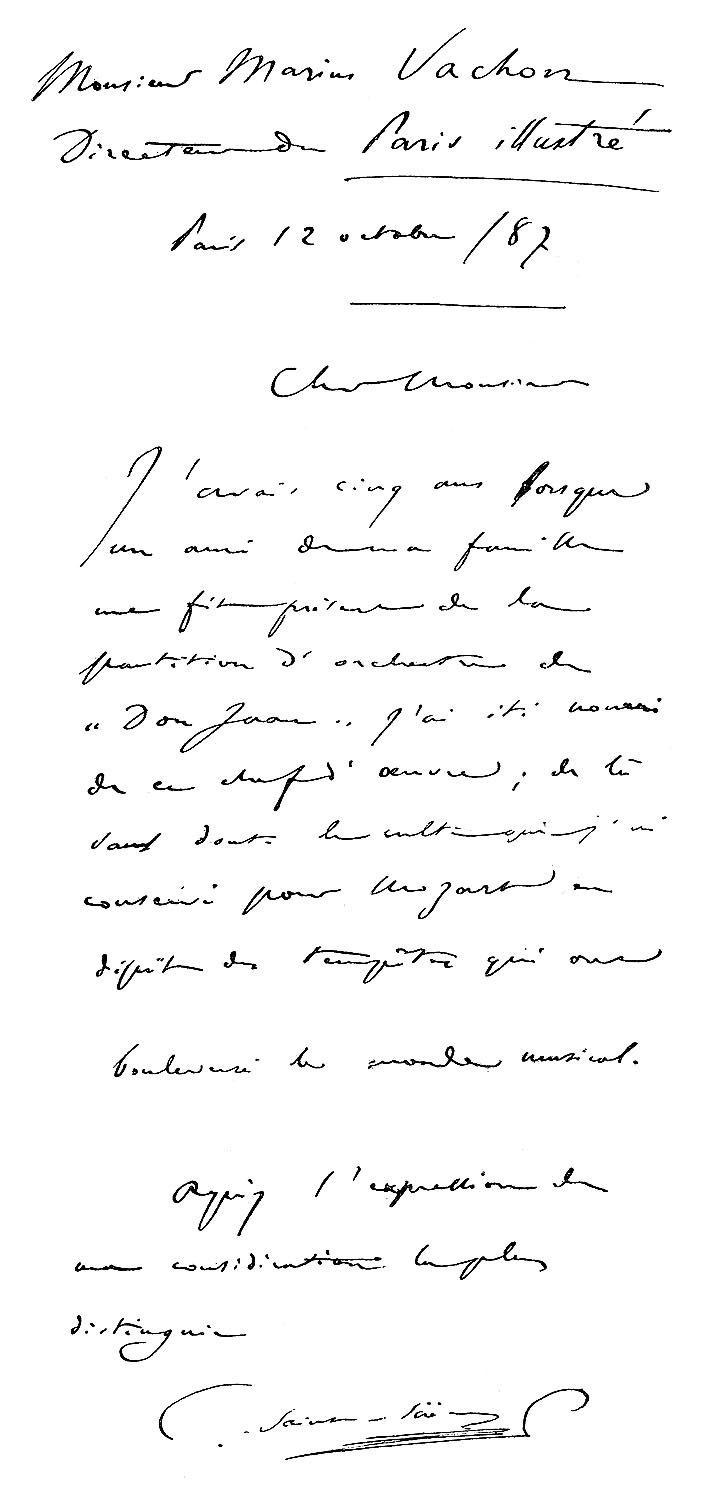 Monsieur Marius Vachon
Directeur du Paris illustré
Paris 12 octobre /87
Cher Monsieur
J'avais cinq ans lorsque
un ami de ma famille
me fit présent de la
partition d'orchestre de
"Don Juan". J'ai été nourri
de ce chef d'œuvre ; de là
sans doute le culte que j'ai
conservé pour Mozart en
dépit des tempêtes qui ont
bouleversé le monde musical.
Agréez l'expression de
ma considération la plus
distinguée
C. Saint-Saëns